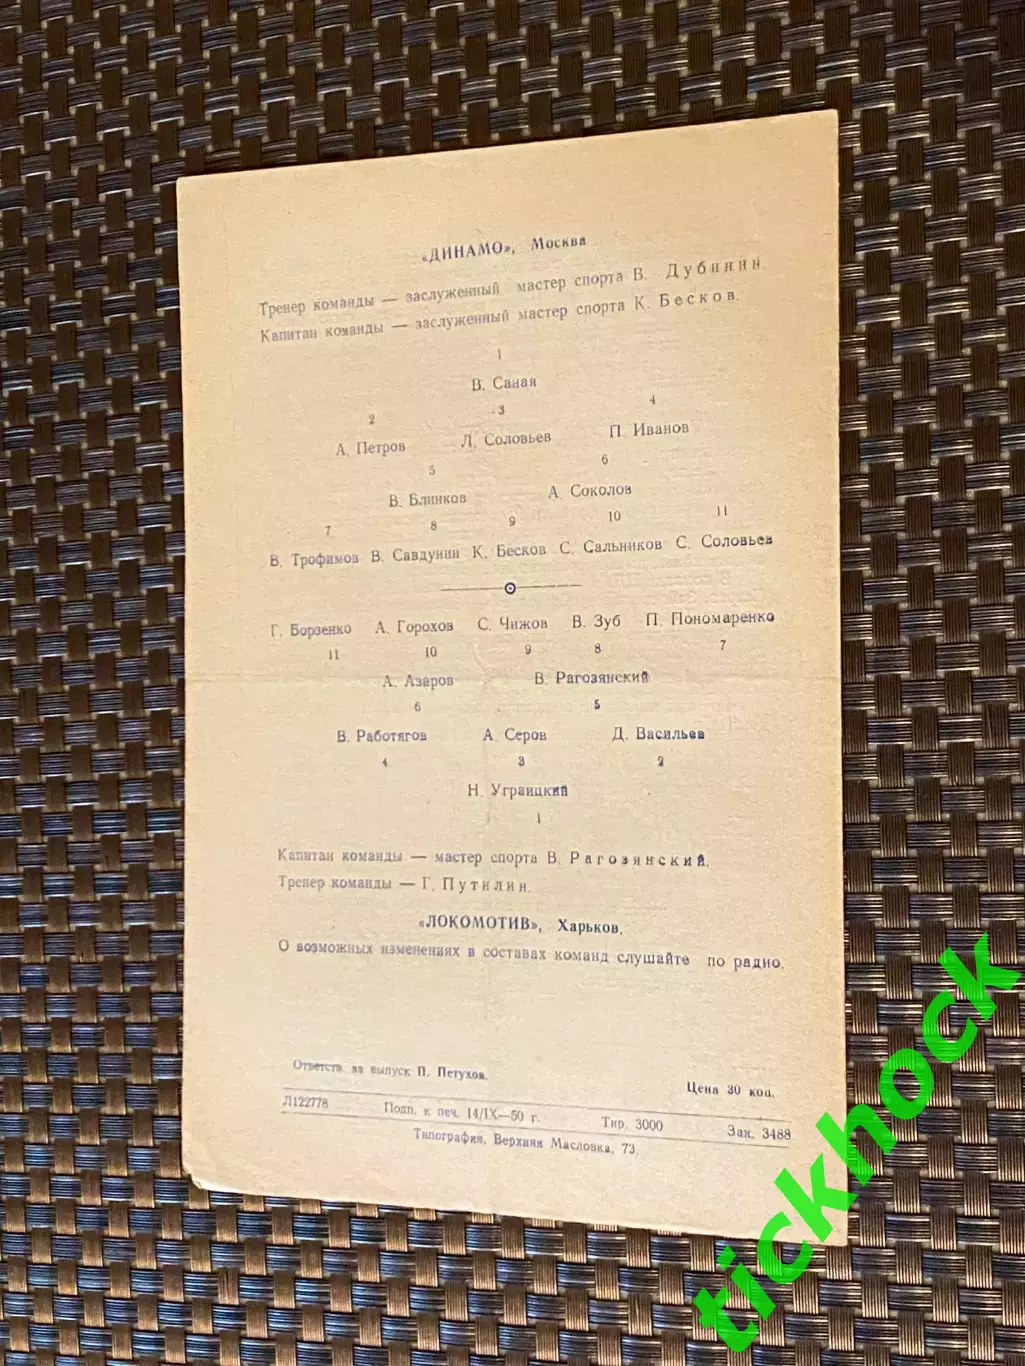 «ДИНАМО», Москва
Тренер команды — заслуженный мастер спорта В. Дубинин.
Капитан команды — заслуженный мастер спорта К. Бесков.
1
В. Саная
2 3 4
А. Петров Л. Соловьев П. Иванов
5 6
В. Блинков А. Соколов
7 8 9 10 11
В. Трофимов В. Савдунин К. Бесков С. Сальников С. Соловьев
Г. Борзенко А. Горохов С. Чижов В. Зуб П. Пономаренко
11 10 9 8 7
А. Азаров В. Рагозянский
6 5
В. Работягов А. Серов Д. Васильев
4 3 2
Н. Уграицкий
1
Капитан команды — мастер спорта В. Рагозянский.
Тренер команды — Г. Путилин.
«ЛОКОМОТИВ», Харьков.
О возможных изменениях в составах команд слушайте по радио.
Ответств. за выпуск П. Петухов.
Цена 30 коп.
Л122778 Подп. к печ. 14/IX—50 г. Тир. 3000 Зак. 3488
Типография, Верхняя Масловка, 73.
tickhock